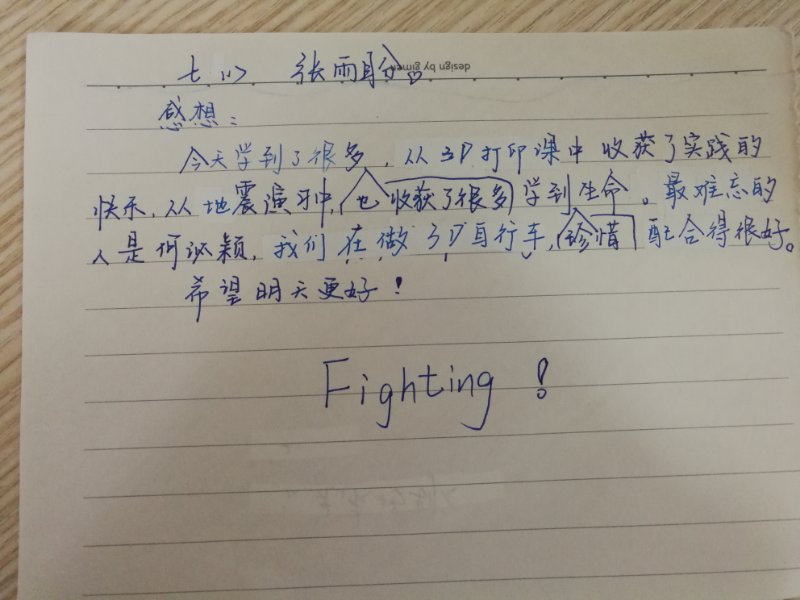 七(1) 张雨盼
design by gimen
感想：
今天学到了很多，从3D打印课中收获了实践的
快乐，从地震演习中，也收获了很多学到生命。最难忘的
人是何泌颖，我们在做3D自行车，珍惜配合得很好。
希望明天更好！
Fighting！